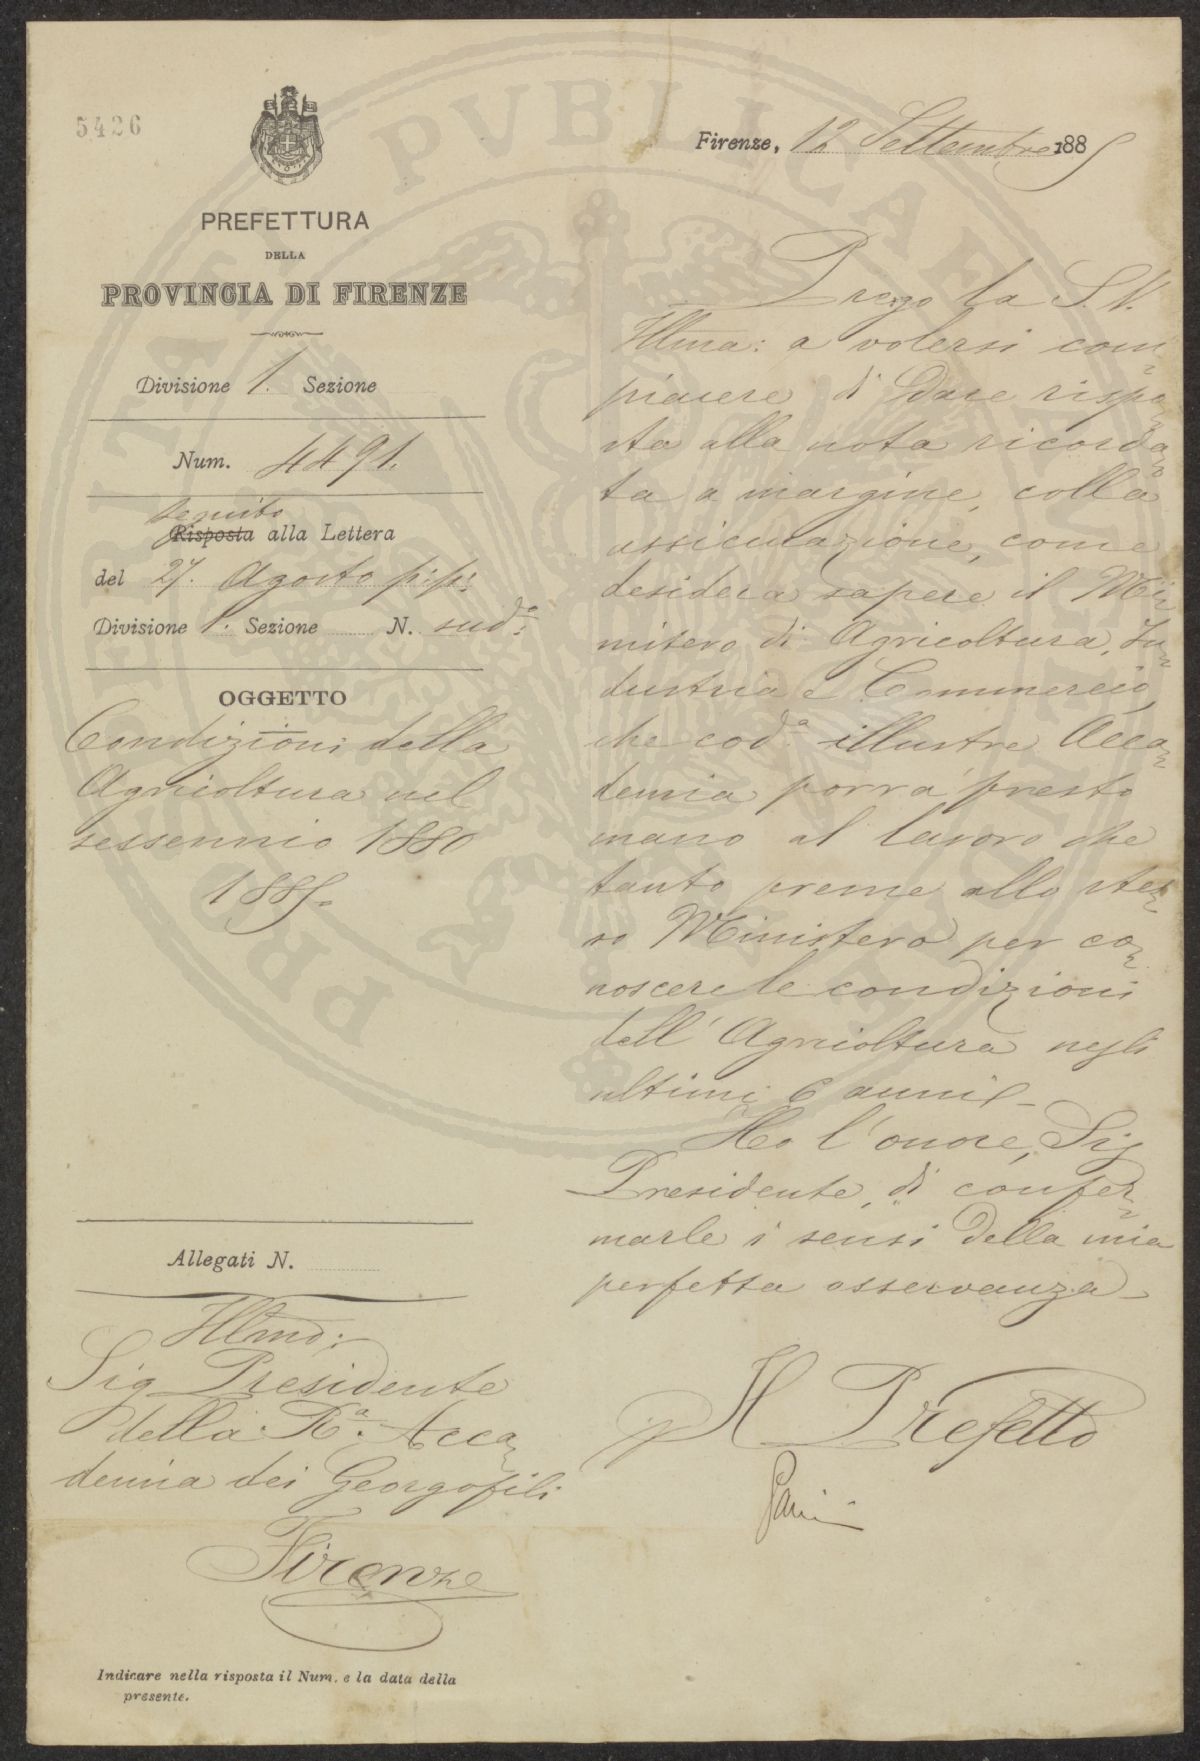 5426
PREFETTURA
DELLA
PROVINCIA DI FIRENZE
Divisione 1. Sezione
Num. 4491.
seguito
Risposta alla Lettera
del 27. Agosto p:p:
Divisione 1. Sezione N. sud.ª
OGGETTO
Condizioni della
Agricoltura nel
sessennio 1880
1885.
Allegati N.
Illmo:
Sig Presidente
della R.ª Acca-
demia dei Georgofili
Firenze
Indicare nella risposta il Num. e la data della
presente.
Firenze, 12 Settembre 1885
Prego la S. V.
Illma: a volersi com-
piacere di dare rispo-
sta alla nota ricorda-
ta a margine, colla
assicurazione, come
desidera sapere il Mi-
nistero di Agricoltura, In-
dustria e Commercio,
che cod.ª illustre Acca-
demia porrà presto
mano al lavoro che
tanto preme allo stes-
so Ministero per co-
noscere le condizioni
dell'Agricoltura negli
ultimi 6 anni.
Ho l'onore, Sig
Presidente, di confer-
marle i sensi della mia
perfetta osservanza
p Il Prefetto
PROSPERITATI PVBLICAE AVGENDAE